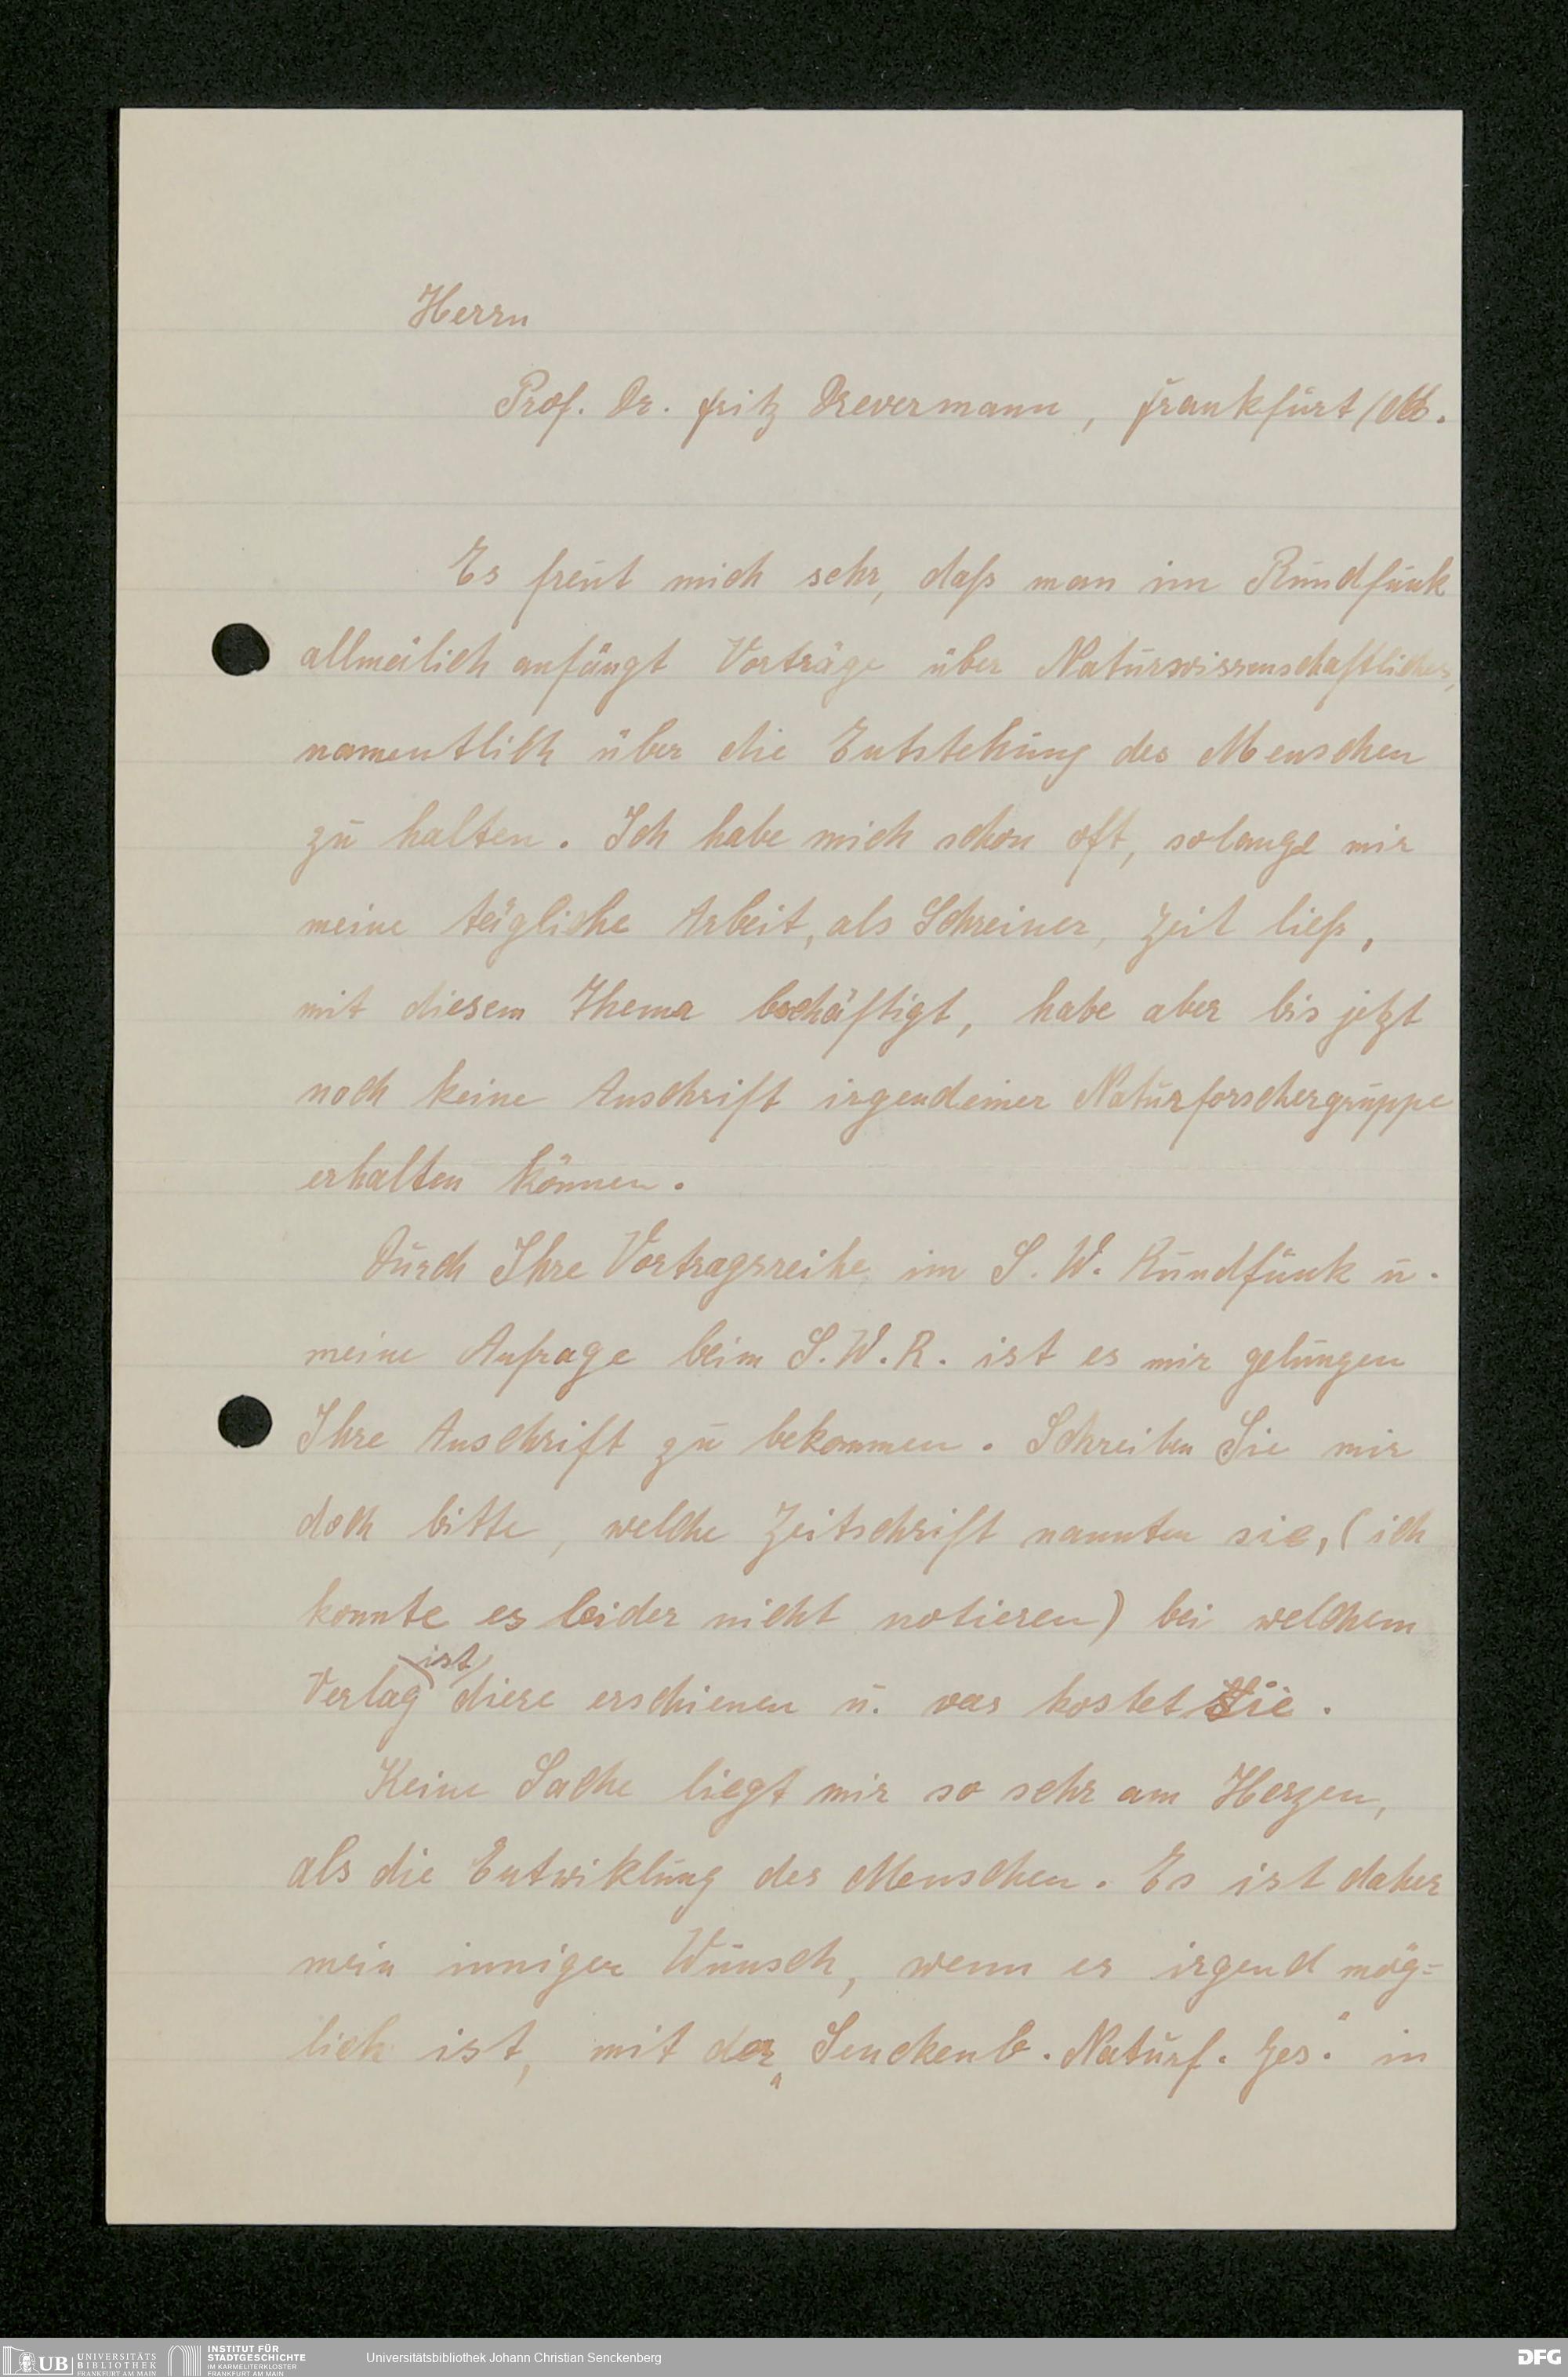 Herrn
Prof. Dr. Fritz Drevermann, Frankfurt/M.
Es freut mich sehr, daß man im Rundfunk
allmälich anfängt Vorträge über Naturwissenschaftliches,
namentlich über die Entstehung des Menschen
zu halten. Ich habe mich schon oft, solange mir
meine tägliche Arbeit, als Schreiner, Zeit ließ,
mit diesem Thema beschäftigt, habe aber bis jetzt
noch keine Anschrift irgendeiner Naturforschergruppe
erhalten können.
Durch Ihre Vortragsreihe im S. W. Rundfunk u.
meine Anfrage beim S.W.R. ist es mir gelungen
Ihre Anschrift zu bekommen. Schreiben Sie mir
doch bitte, welche Zeitschrift nannten sie, (ich
konnte es leider nicht notieren) bei welchem
Verlag ist diese erschienen u. was kostet sie.
Keine Sache liegt mir so sehr am Herzen,
als die Entwiklung des Menschen. Es ist daher
mein inniger Wunsch, wenn es irgend mög=
lich ist, mit der „Senckenb. Naturf. Ges." in
UB UNIVERSITÄTS BIBLIOTHEK FRANKFURT AM MAIN
INSTITUT FÜR STADTGESCHICHTE IM KARMELITERKLOSTER FRANKFURT AM MAIN
Universitätsbibliothek Johann Christian Senckenberg
DFG